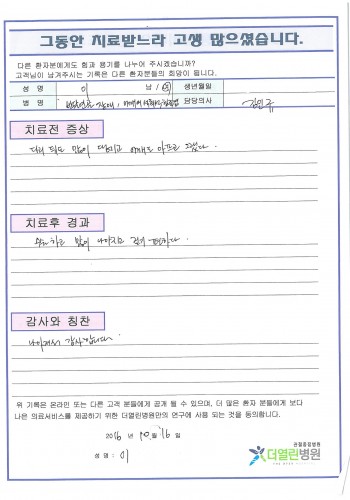 그동안 치료받느라 고생 많으셨습니다.
다른 환자분에게도 힘과 용기를 나누어 주시겠습니까?
고객님이 남겨주시는 기록은 다른 환자분들의 희망이 됩니다.
성 명 이 남 / 여 생년월일
병 명 담당의사 김민규
치료전 증상
다리 뒤도 많이 땡기고 어깨도 아프고 그랬다.
치료후 경과
수술하고 많이 나아지고 편하다.
감사와 칭찬
나아져서 감사합니다.
위 기록은 온라인 또는 다른 고객 분들에게 공개 될 수 있으며, 더 많은 환자 분들에게 보다
나은 의료서비스를 제공하기 위한 더열린병원만의 연구에 사용 되는 것을 동의합니다.
2016 년 10 월 16 일
성 명 : 이
관절중점병원
더열린병원